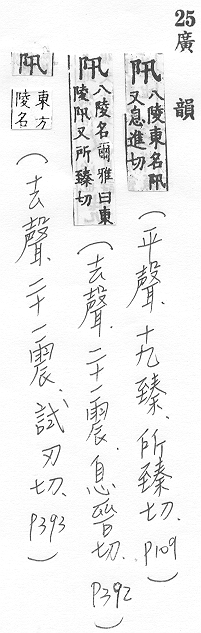 25廣韻
阠 八陵東名阠又息進切 （平聲．十九臻．所臻切．P109）
阠 八陵名爾雅曰東陵阠又所臻切 （去聲．二十一震．息晉切．P392）
阠 東方陵名 （去聲．二十一震．試刃切．P393）